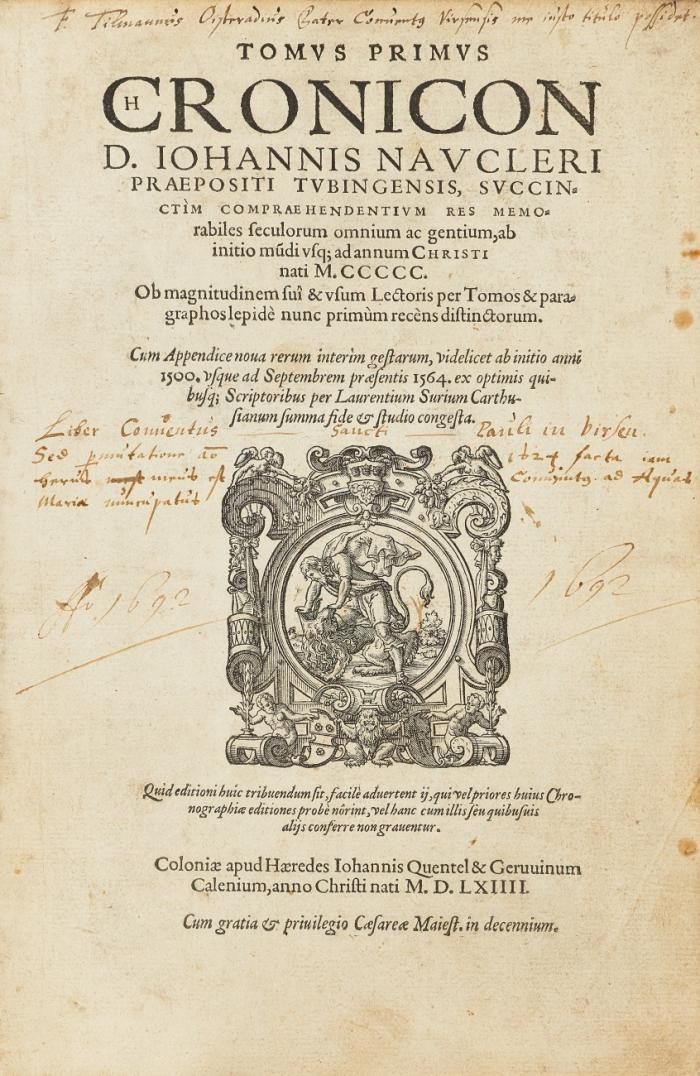 F. Tilmannus Osteradius Pater Conventus Virsensis me iusto titulo possidet.
TOMVS PRIMVS
CHRONICON
D. IOHANNIS NAVCLERI
PRAEPOSITI TVBINGENSIS, SVCCIN-
CTÌM COMPRAEHENDENTIVM RES MEMO-
rabiles seculorum omnium ac gentium, ab
initio mūdi vsq; ad annum CHRISTI
nati M. CCCCC.
Ob magnitudinem sui & vsum Lectoris per Tomos & para-
graphos lepidè nunc primùm recèns distinctorum.
Cum Appendice noua rerum interim gestarum, videlicet ab initio anni
1500. vsque ad Septembrem præsentis 1564. ex optimis qui-
busq; Scriptoribus per Laurentium Surium Carthu-
sianum summa fide & studio congesta.
Liber Conuentus Sancti Pauli in Virsen.
Sed pmutatione āō 1624 facta iam
herus meus est Conuentq. ad Aquas
Maria nuncupatus
1692 1692
Quid editioni huic tribuendum sit, facilè aduertent ij, qui vel priores huius Chro-
nographiæ editiones probè nôrint, vel hanc cum illis seu quibusuis
alijs conferre non grauentur.
Coloniæ apud Hæredes Iohannis Quentel & Geruuinum
Calenium, anno Christi nati M. D. LXIIII.
Cum gratia & priuilegio Cæsareæ Maiest. in decennium.